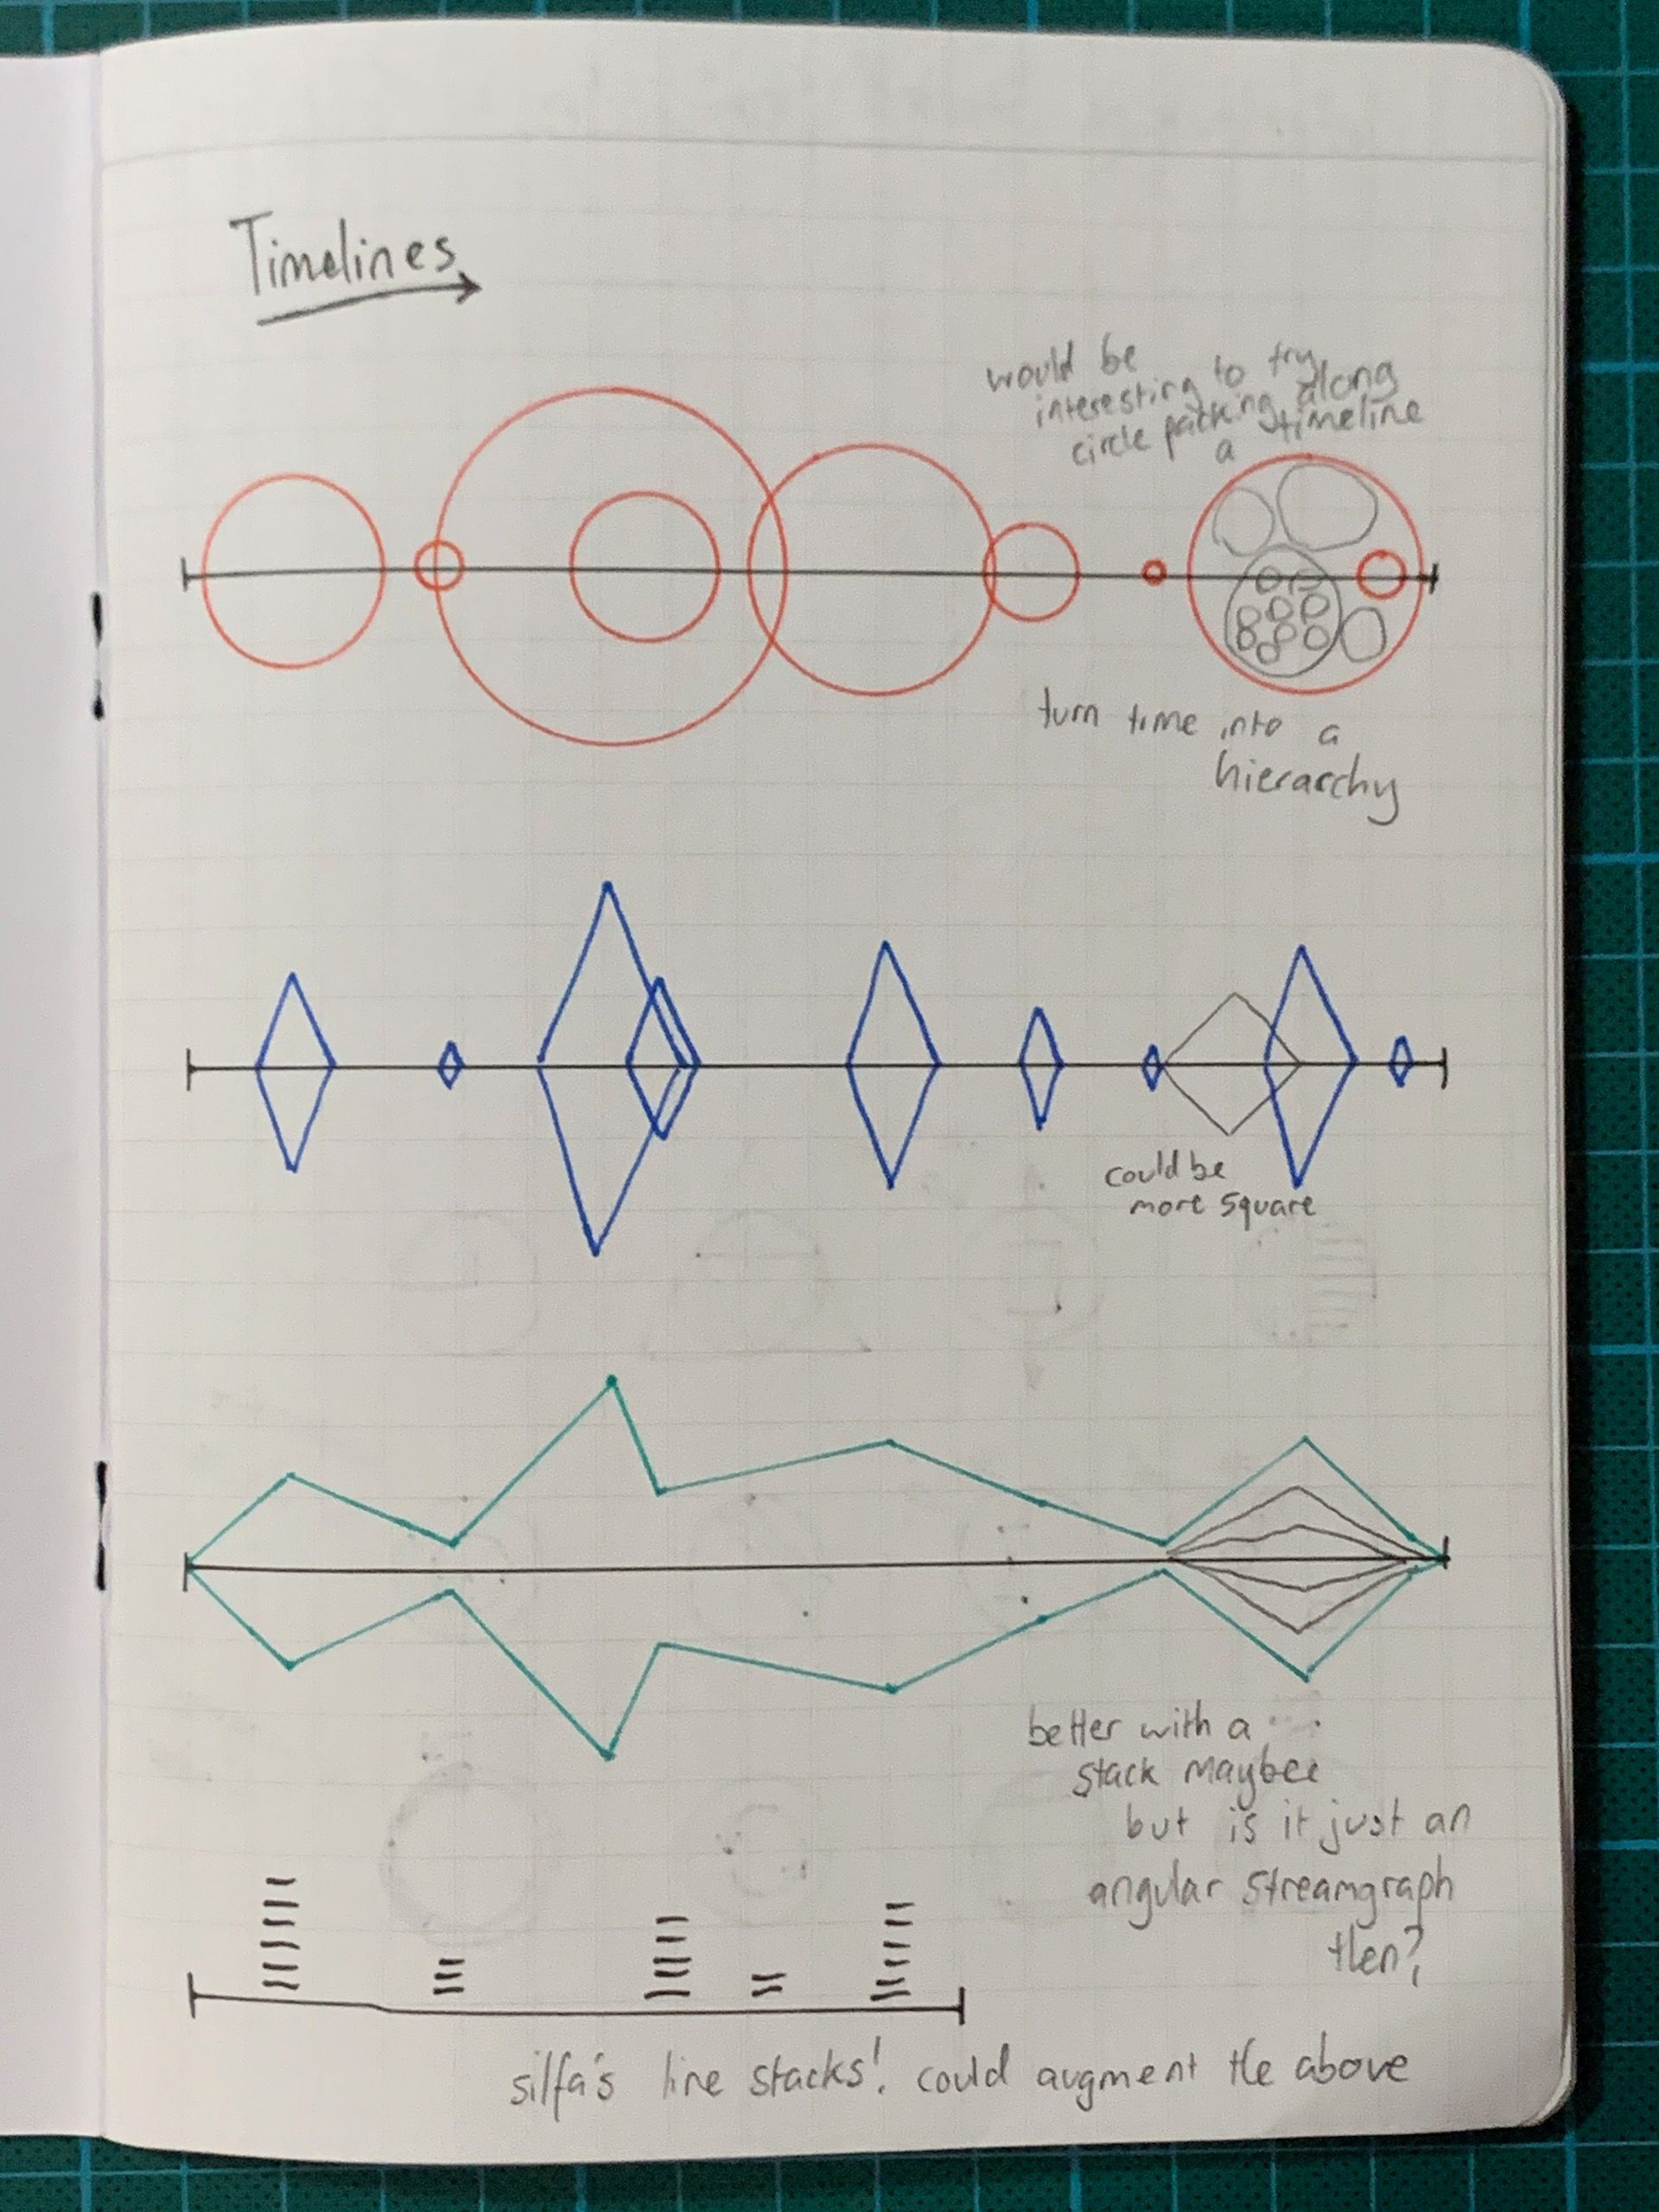 Timelines
would be
interesting to try
circle packing along
a timeline
turn time into a
hierarchy
could be
more square
better with a
stack maybee
but is it just an
angular streamgraph
then?
silfa's line stacks! could augment the above